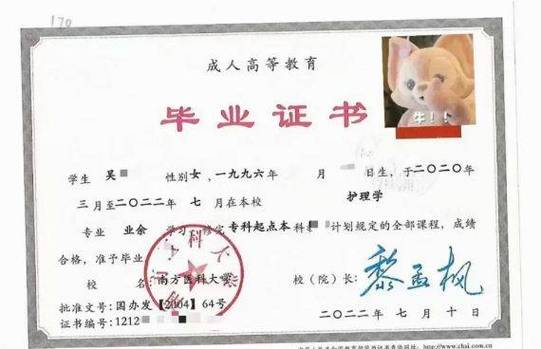 170
成人高等教育
毕业证书
牛!!
学生 吴 性别女，一九九六年 月 日生，于二〇二〇年
三月至二〇二二年 七月在本校 护理学
专业 业余 学习 修完 专科起点本科 计划规定的全部课程，成绩
合格，准予毕业
校 名: 南方医科大学 校(院)长: 黎孟枫
批准文号: 国办发【2004】64号
证书编号: 1212 二〇二二年 七月十日
http://www.chsi.com.cn